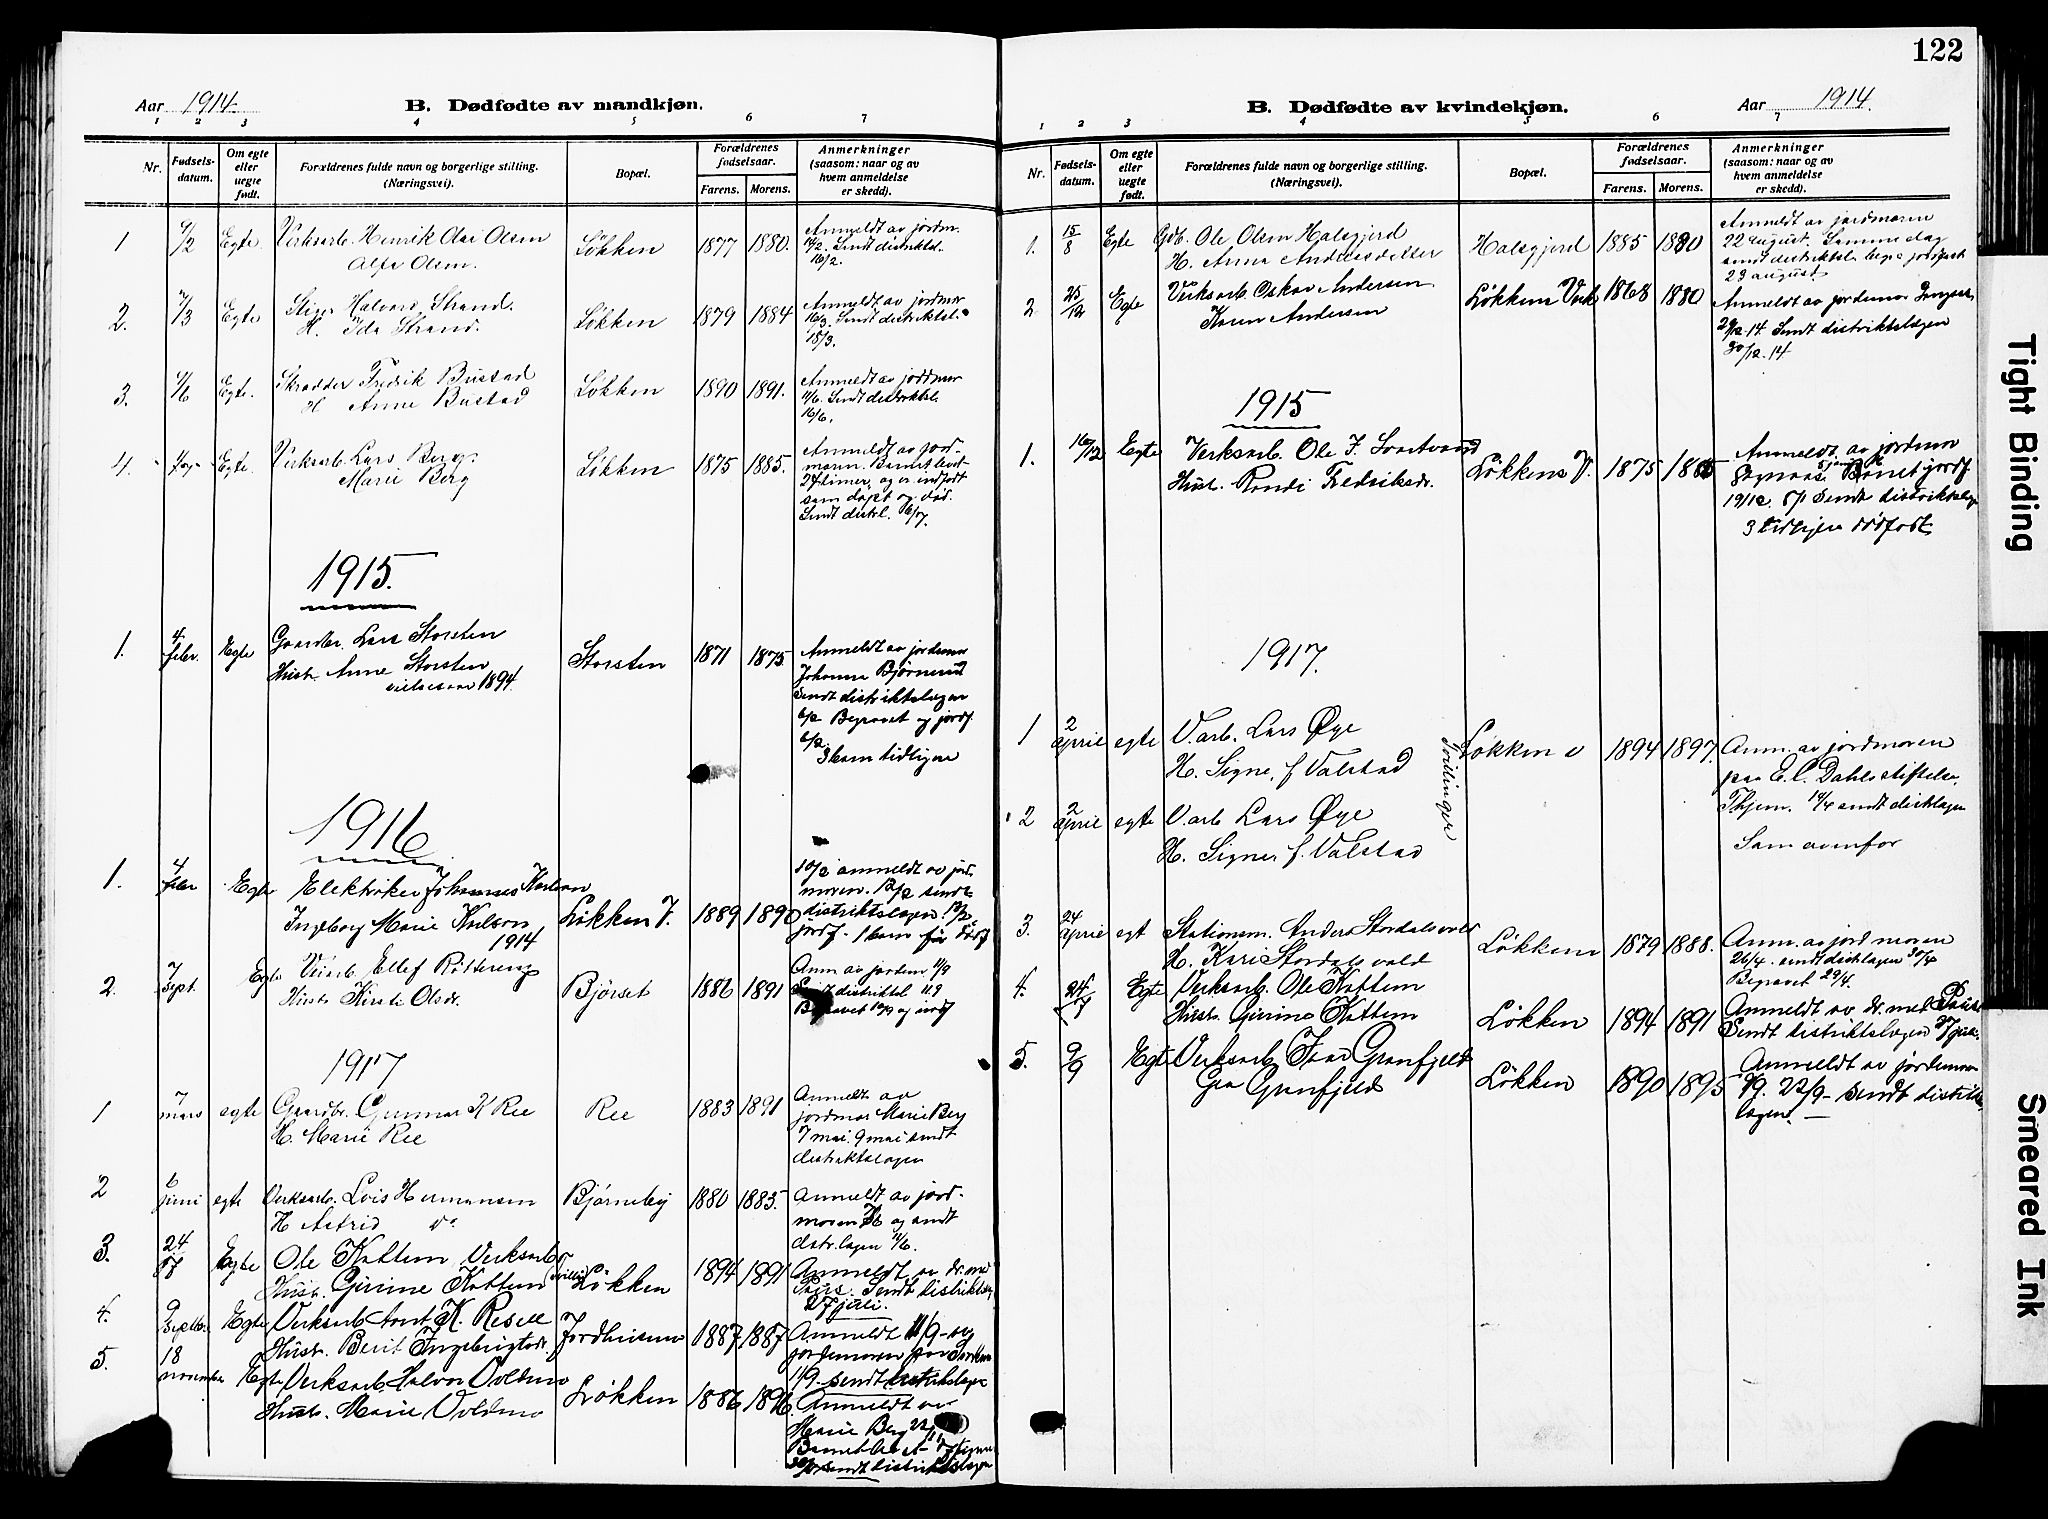 122
Aar 1914.
B. Dødfødte av mandkjøn.
1 2 3 4 5 6 7
Nr.
Fødsels-
datum.
Om egte
eller
uegte
født.
Forældrenes fulde navn og borgerlige stilling.
(Næringsvei).
Bopæl.
Forældrenes
fødselsaar.
Farens. Morens.
Anmerkninger
(saasom: naar og av
hvem anmeldelse
er skedd).
1 Egte. Verksarb. Henrik Olai Olsen Løkken 1877 1880. Anmeldt av jordm.
Alfa Olsen. Sendt distriktsl.
16/2.
2. 7/3 Egte Stiger Halvard Strand. Løkken 1879 1884 Anmeldt av jordmor
H. Ida Strand. 16/3. Sendt distriktsl.
18/3.
3. Egte. Skrædder Fredrik Bustad Løkken 1890 1891. Anmeldt av jordmor
H Anne Bustad Sendt distriktsl.
16/6.
4. Egte. Verksarb. Lars Berg. Løkken 1875 1885. Anmeldt av jord-
Marie Berg moren. Barnet levet
24 timer, og er indført
som døpt og død.
Sendt distrl.
1915.
1. 4 febr. Egte Gaardbr. Lars Storsten Storsten 1871 1875 Anmeldt av jordmor
Hustr. Anne Storsten Johanna Bjørnerud
vielsesaar 1894. Sendt distriktslægen
6/2 Begravet og jordf.
6/2.
3 barn tidligere
1916
1. 4 febr Egte Elektriker Johannes Karlson Løkken V. 1889 1890 10/2 anmeldt av jord
Ingeborg Marie Karlson moren. 12/2 sendt
1914 distriktslægen
jordf. 1 barn før dødf
2. 7 Sept. Egte Verkarb. Ellef Rötterseng Bjørset 1886 1891 Anm av jordm 11/9
Hustr Kirsti Olsdr. Sendt distriktsl 11.9
Begravet 10/9 og jordf
1917
1 7 mars egte Gaardbr. Gunnar K Ree Ree 1883 1891 Anmeldt av
H. Marie Ree jordmor Marie Berg
7 mai. 9 mai sendt
distriktslægen
2 6 juni egte Verksarb. Lois Hermansen Bjørneby 1880 1883. Anmeldt av jord-
H Astrid do moren og sendt
distr.lægen 11/6.
3. 24/7 Egte Ole Kattem Verksarb Løkken 1894 1891 Anmeldt av dr. med
Hustr. Gurine Kattem Sendt distriktslæg
27 juli.
4. 9 Septbr. Egte Verksarb Arnt K. Resell Jordhusmo 1887 1887 Anmeldt 11/9 av
Hustr. Berit Ingebrigtsdr. jordemoren
11/9. sendt distriktslægen
5. 18 november Egte Verksarb. Halvor Voldmo Løkken 1886 1896. Anmeldt av
Hustr. Marie Voldmo Marie Berg 22/11
Barnet levet 7 timer
sendt distriktslægen
B. Dødfødte av kvindekjøn.
Aar 1914.
1 2 3 4 5 6 7
Nr.
Fødsels-
datum.
Om egte
eller
uegte
født.
Forældrenes fulde navn og borgerlige stilling.
(Næringsvei).
Bopæl.
Forældrenes
fødselsaar.
Farens. Morens.
Anmerkninger
(saasom: naar og av
hvem anmeldelse
er skedd).
1. 15/8 Egte Gdb. Ole Olsen Halsgjerd Halsgjerd 1885 1880 Anmeldt av jordmoren
H. Anna Andersdatter 22 august. Samme dag
sendt distriktsl.
23 august.
2 25/12 Egte Verksarb. Oskar Andersen Løkkens Verk 1868 1880 Anmeldt av jordemor
Karen Andersen 29/12.14. Sendt distriktslægen
30/12.14
1915
1. 16/12 Egte Verksarb. Ole J. Løkkens V. 1875 Anmeldt av jordmor
Hust. Randi Fredriksdr. Barnet jordf.
19/12. Sendt distriktslæg
3 tidligere dødfødt
1917.
1 2 april egte V.arb. Lars Øye Løkken v 1894 1897. Anm. av jordmoren
H. Signe, f. Valstad paa E. C. Dahls stiftelse,
Tvillinger
Thjem. sendt distrlægen
2 2 april egte V.arb Lars Øye
H. Signe, f. Valstad Som ovenfor
3. 24 april egt Stationsm. Anders Stordalsvold Løkken 1879 1888. Anm. av jordmoren
H. Kari Stordalsvold 26/4. sendt distrlægen 30/4
Begravet 29/4.
4. 24/7 Egte Verksarb. Ole Kattem Løkken 1894 1891 Anmeldt av dr. med
Hustr. Gurine Kattem Sendt distriktslægen 27 juli.
5. 9/9 Egte Verksarb Ivar Granfjeld Løkken 1890 1895 Anmeldt av jordemor
Gea Granfjeld 22/9 sendt distrikts-
lægen.
Tight Binding
Smeared Ink